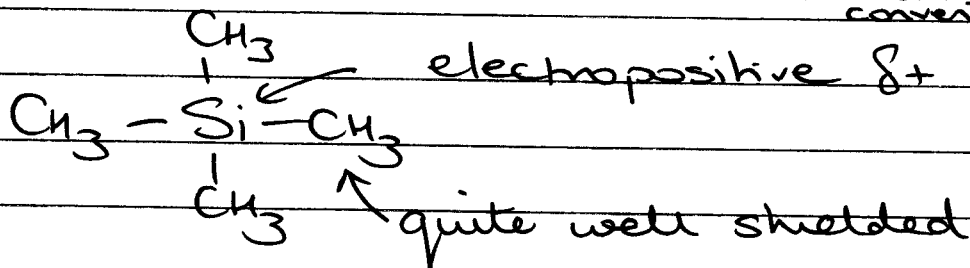 CH3
electropositive δ+
CH3 - Si - CH3
CH3
quite well shielded